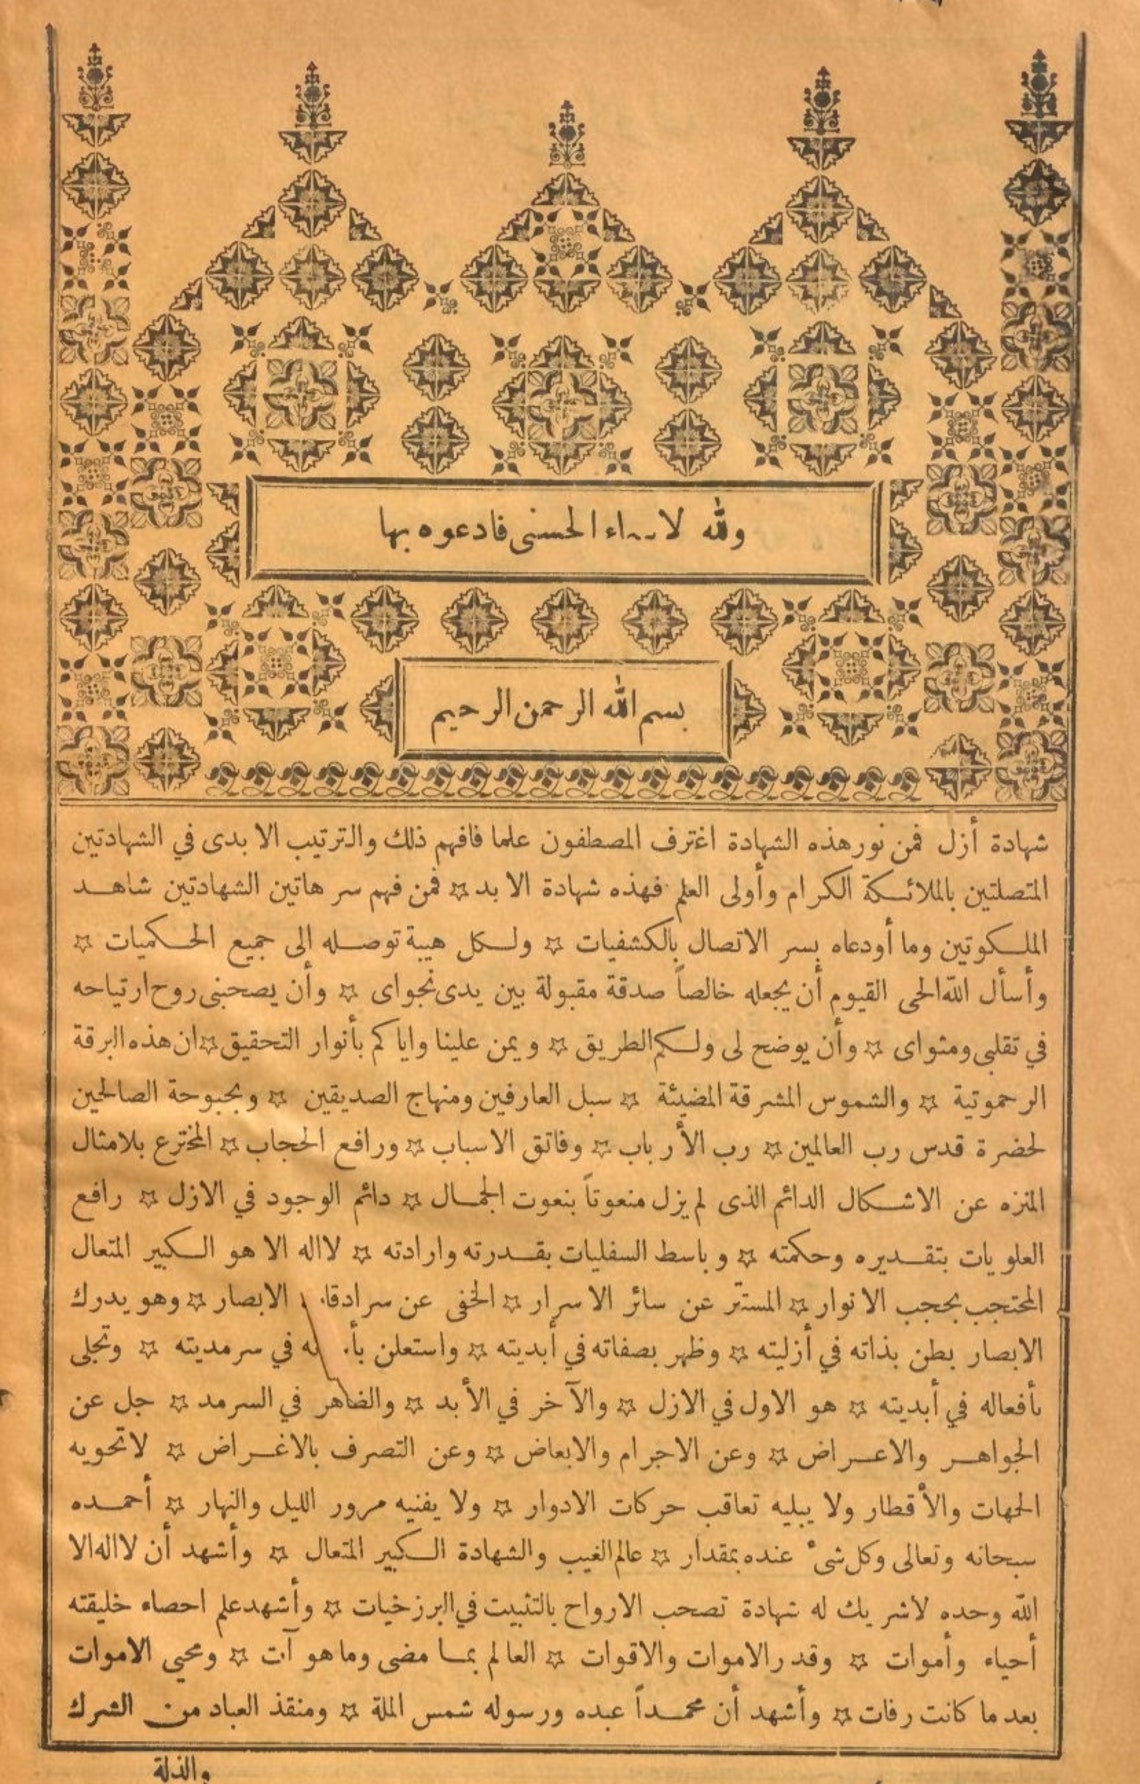 ولله لا فادعوه بها الحسنى
بسم الله الرحمن الرحيم
شهادة أزل فمن نور هذه الشهادة اغترف المصطفون علما فافهم ذلك والترتيب الابدى في الشهادتين
المتصلتين بالملائكة الكرام وأولى العلم فهذه شهادة الابد ✩ فمن فهم سر هاتين الشهادتين شاهد
الملكوتين وما أودعاه بسر الاتصال بالكشفيات ✩ ولكل هيبة توصله الى جميع الحكميات ✩
وأسأل الله الحى القيوم أن يجعله خالصاً صدقة مقبولة بين يدى نجواى ✩ وأن يصحبنى روح ارتياحه
في تقلبى ومثواى ✩ وأن يوضح لى ولكم الطريق ✩ ويمن علينا واياكم بأنوار التحقيق ✩ ان هذه البرقة
الرحموتية ✩ والشموس المشرقة المضيئة ✩ سبل العارفين ومنهاج الصديقين ✩ وبحبوحة الصالحين
لحضرة قدس رب العالمين ✩ رب الأرباب ✩ وفاتق الاسباب ✩ ورافع الحجاب ✩ المخترع بلامثال
المنزه عن الاشكال الدائم الذى لم يزل منعوتاً بنعوت الجمال ✩ دائم الوجود في الازل ✩ رافع
العلويات بتقديره وحكمته ✩ وباسط السفليات بقدرته وارادته ✩ لااله الا هو الكبير المتعال
المحتجب بحجب الانوار ✩ المستتر عن سائر الاسرار ✩ الخفى عن الابصار ✩ وهو يدرك
الابصار بطن بذاته في أزليته ✩ وظهر بصفاته في أبديته ✩ واستعلن في سرمديته ✩ وتجلى
بأفعاله في أبديته ✩ هو الاول في الازل ✩ والآخر في الأبد ✩ والظاهر في السرمد ✩ جل عن
الجواهر والاعراض ✩ وعن الاجرام والابعاض ✩ وعن التصرف بالاغراض ✩ لاتحويه
الجهات والأقطار ولا يبليه تعاقب حركات الادوار ✩ ولا يفنيه مرور الليل والنهار ✩ أحمده
سبحانه وتعالى وكل شىء عنده بمقدار ✩ عالم الغيب والشهادة الكبير المتعال ✩ وأشهد أن لااله الا
الله وحده لاشريك له شهادة تصحب الارواح بالتثبيت في البرزخيات ✩ وأشهد علم احصاء خليقته
أحياء وأموات ✩ وقدر الاموات والاقوات ✩ العالم بما مضى وما هو آت ✩ ومحيي الاموات
بعد ما كانت رفات ✩ وأشهد أن محمداً عبده ورسوله شمس الملة ✩ ومنقذ العباد من الشرك
والذلة